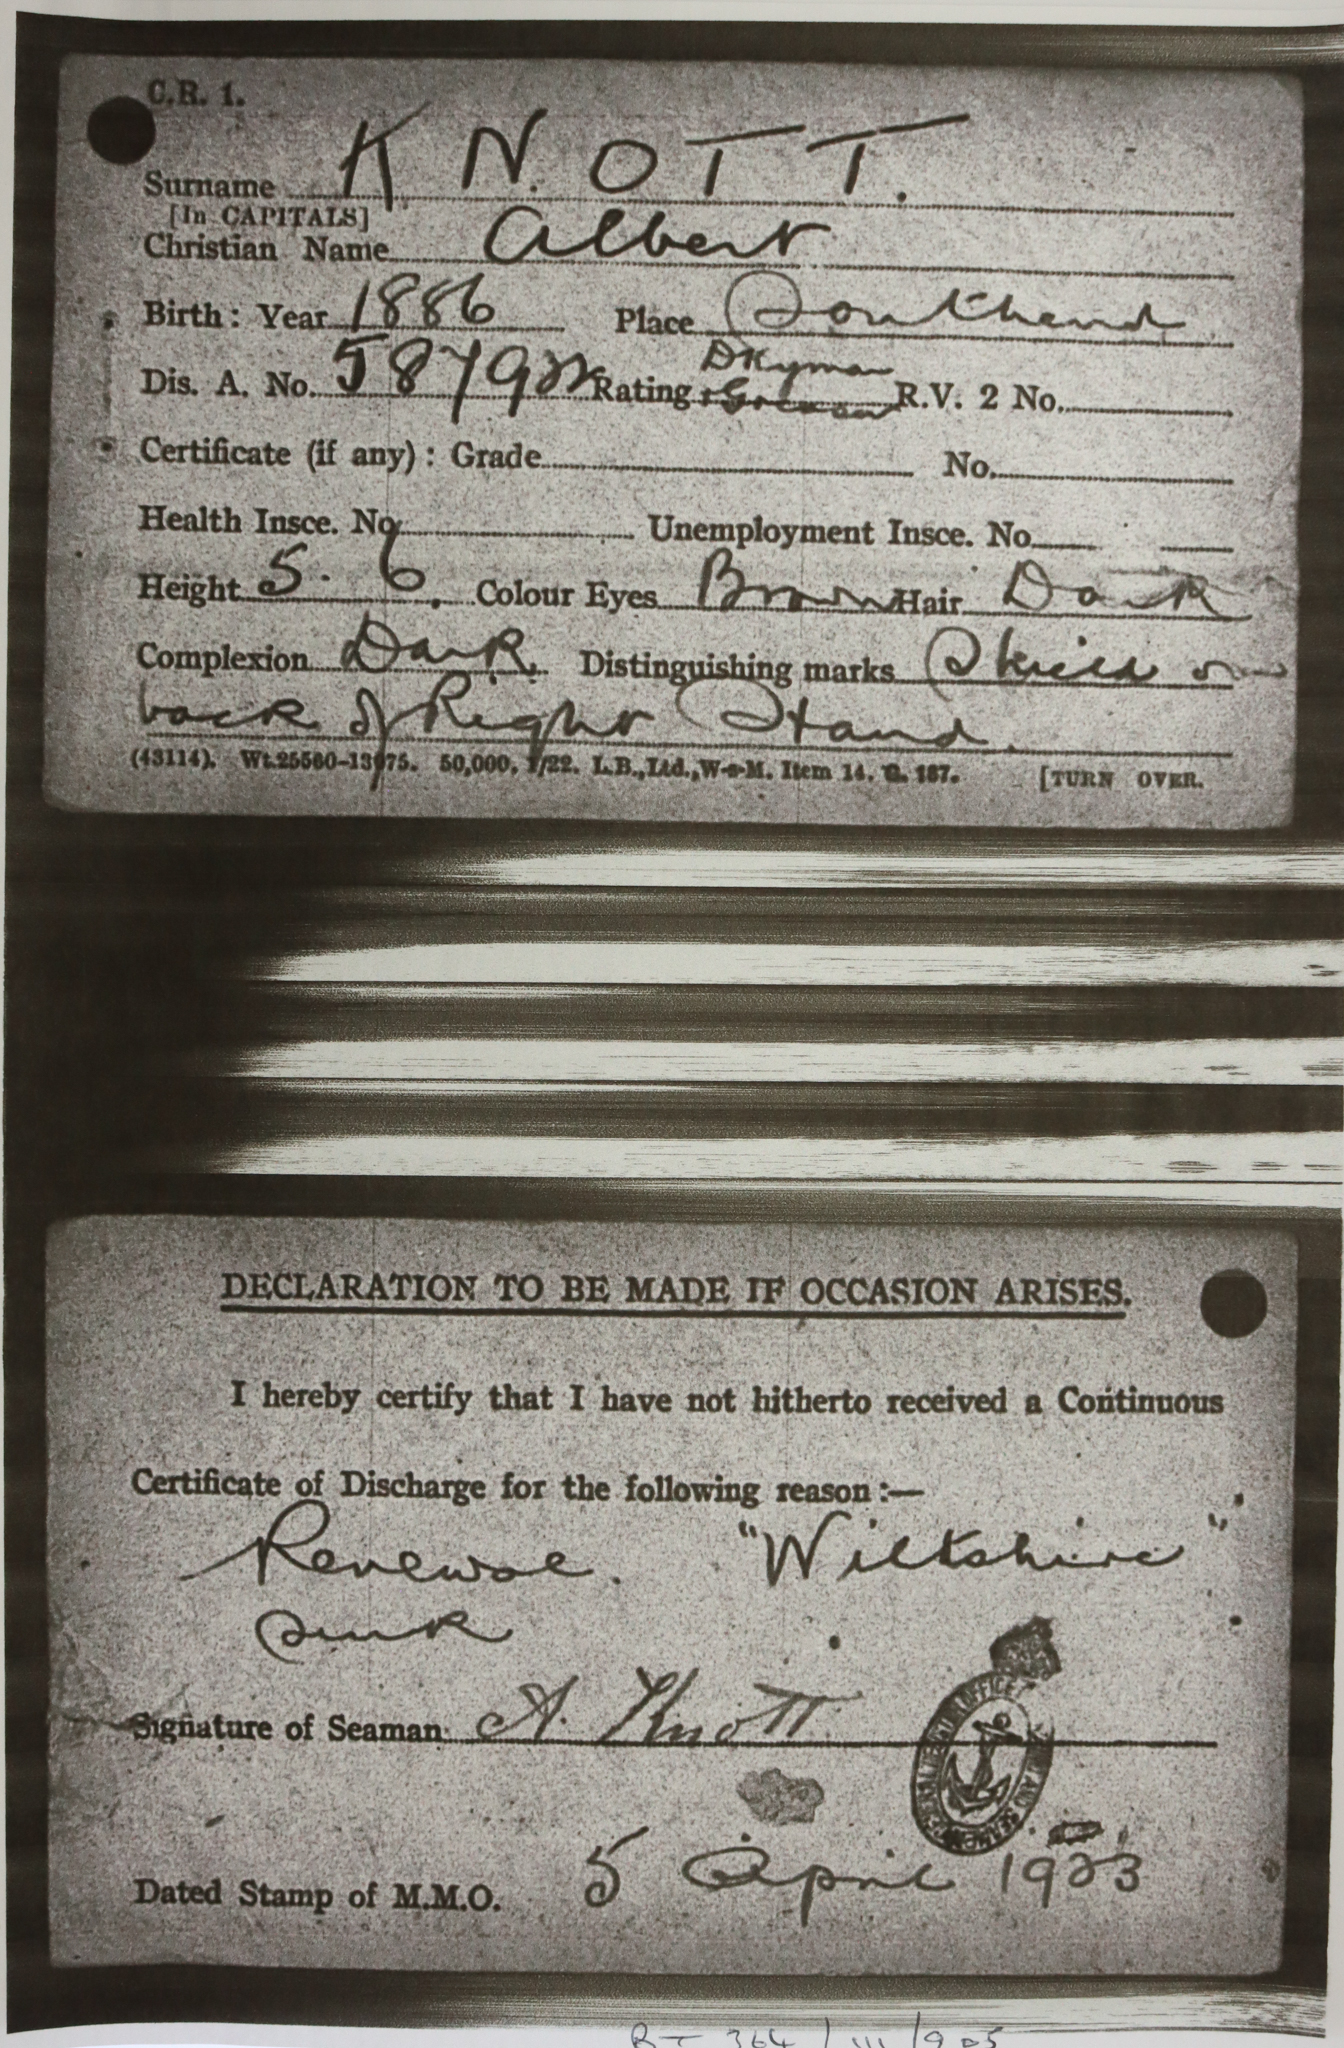 C.R. 1.
Surname KNOTT.
[In CAPITALS]
Christian Name Albert
Birth: Year 1886 Place Southend
Dis. A. No. 587922 Rating Dkyman R.V. 2 No.
Certificate (if any): Grade No.
Health Insce. No. Unemployment Insce. No.
Height 5. 6. Colour Eyes Brown Hair Dark
Complexion Dark. Distinguishing marks Shield on
back of Right Hand.
(43114). Wt.25560-13975. 50,000. 1/22. L.B., Ltd., W-o-M. Item 14. G. 187. [TURN OVER.
DECLARATION TO BE MADE IF OCCASION ARISES.
I hereby certify that I have not hitherto received a Continuous
Certificate of Discharge for the following reason:—
Renewal. "Wiltshire"
sunk
Signature of Seaman A. Knott
Dated Stamp of M.M.O. 5 April 1923